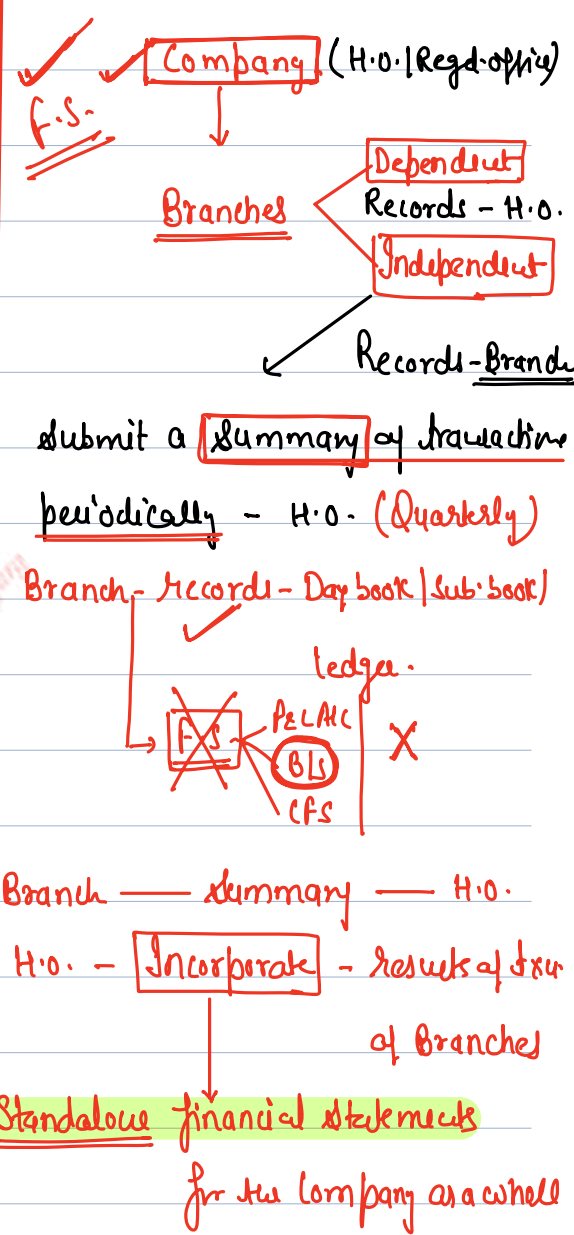 Company (H.O. | Regd. office)
F.S.
Dependent
Branches Records - H.O.
Independent
Records - Branch
Submit a Summary of transactions
periodically - H.O. (Quarterly)
Branch - records - Day book | Sub. book |
ledger.
F S P&L A/C X
B/S
CFS
Branch — Summary — H.O.
H.O. - Incorporate - results of txn
of Branches
Standalone financial statements
for the Company as a whole